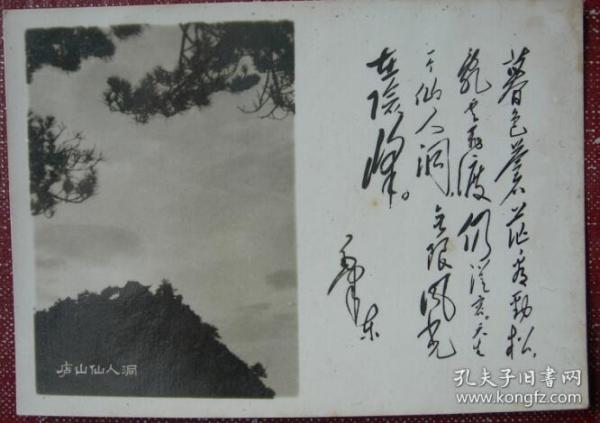 暮色蒼茫看勁松,
亂云飛渡仍從容。天生
一个仙人洞,無限風光
在險峰。
毛泽东
庐山仙人洞
孔夫子旧书网
www.kongfz.com